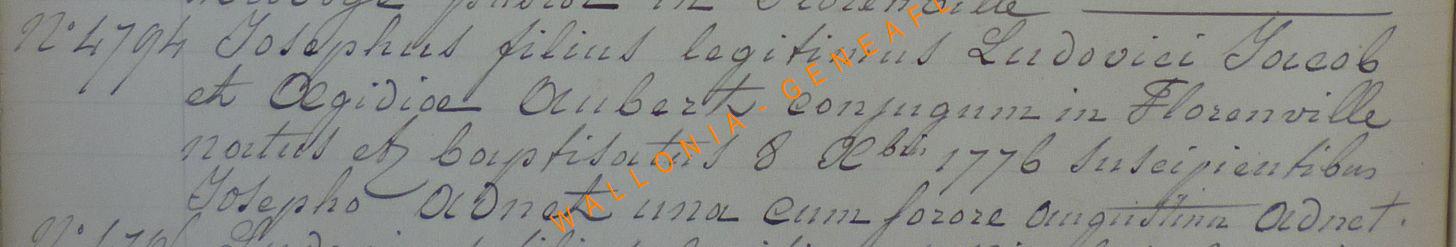 in Florenville
N° 4794 Josephus filius legitimus Ludovici Jacob
et Ægidiæ Aubert conjugum in Florenville
natus et baptisatus 8 Xbris 1776 suscipientibus
Josepho Adnet una cum sorore augustina Adnet.
WALLONIA-GENEAFL